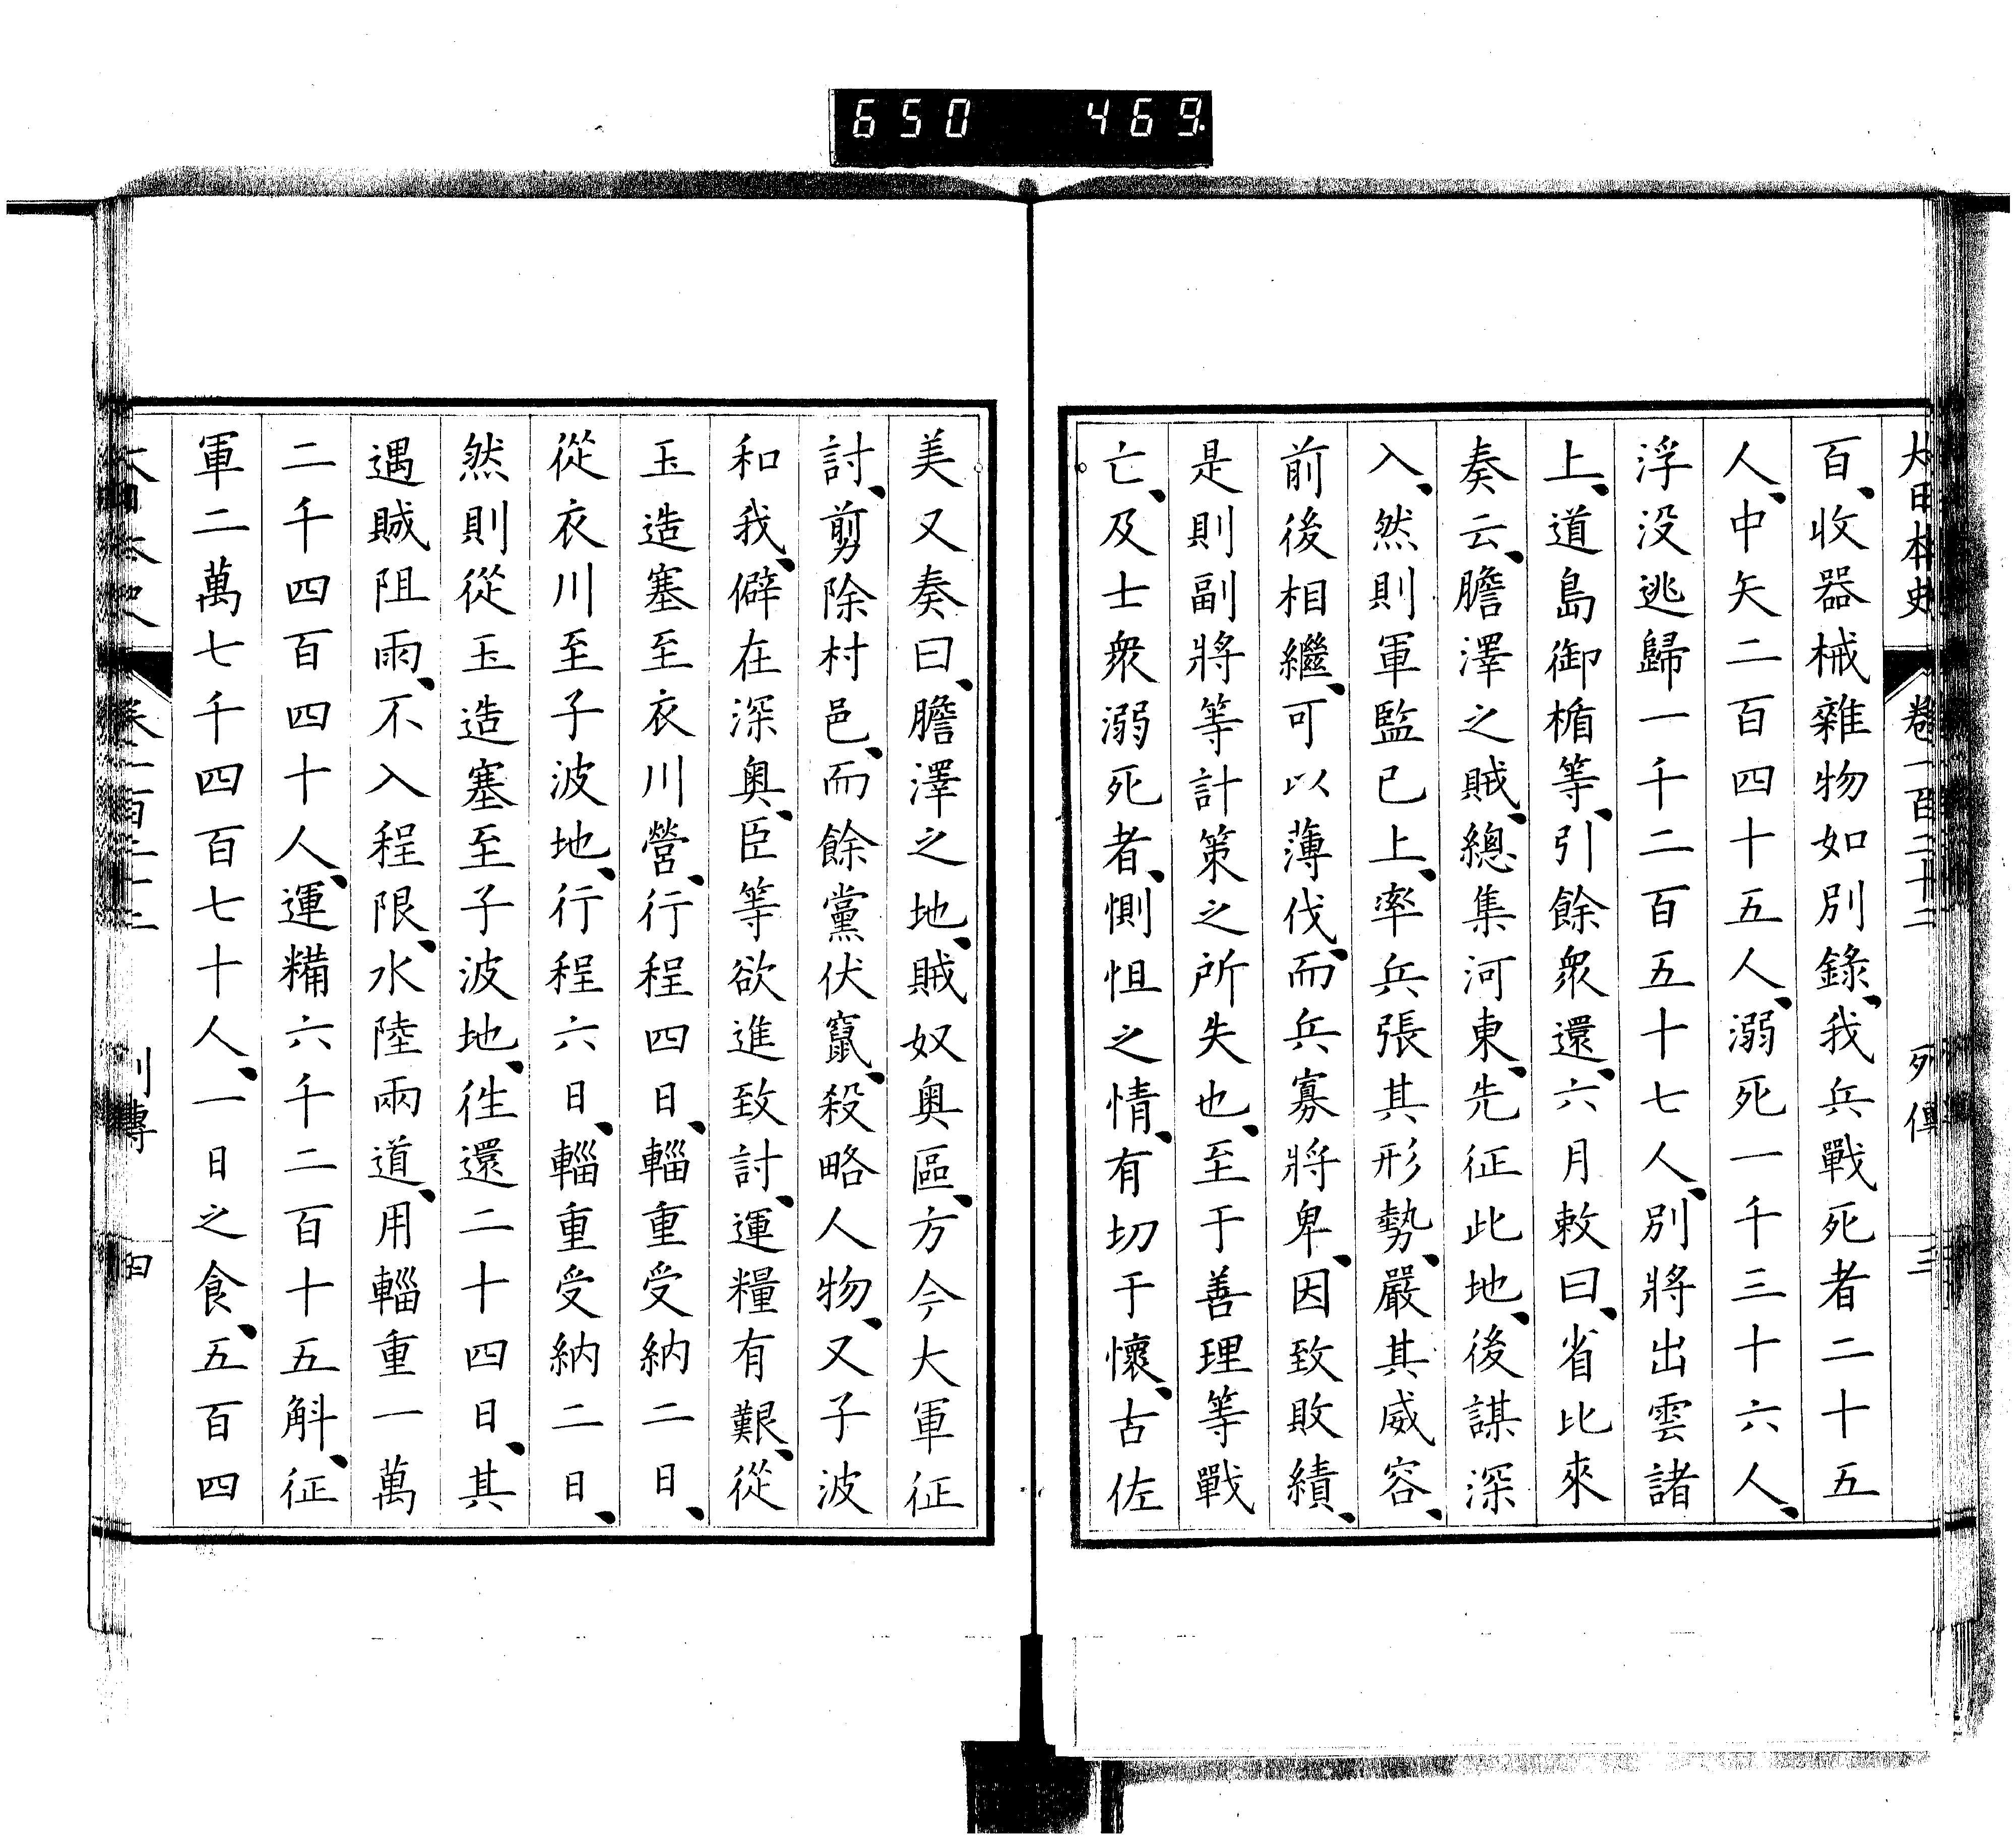 650 469.
大日本史 卷一百二十二 列傳 三
百、收器械雜物如別錄、我兵戰死者二十五
人、中矢二百四十五人、溺死一千三十六人、
浮没逃歸一千二百五十七人、別將出雲諸
上、道島御楯等、引餘衆還、六月敕曰、省比來
奏云、膽澤之賊、總集河東、先征此地、後謀深
入、然則軍監已上、率兵張其形勢、嚴其威容、
前後相繼、可以薄伐、而兵寡將卑、因致敗績、
是則副將等計策之所失也、至于善理等戰
亡、及士衆溺死者、惻怛之情、有切于懷、古佐
美又奏曰、膽澤之地、賊奴奧區、方今大軍征
討、剪除村邑、而餘黨伏竄、殺略人物、又子波
和我、僻在深奧、臣等欲進致討、運糧有艱、從
玉造塞至衣川營、行程四日、輜重受納二日、
從衣川至子波地、行程六日、輜重受納二日、
然則從玉造塞至子波地、徃還二十四日、其
遇賊阻雨、不入程限、水陸兩道、用輜重一萬
二千四百四十人、運糒六千二百十五斛、征
軍二萬七千四百七十人、一日之食、五百四
大日本史 卷一百二十二 列傳 四